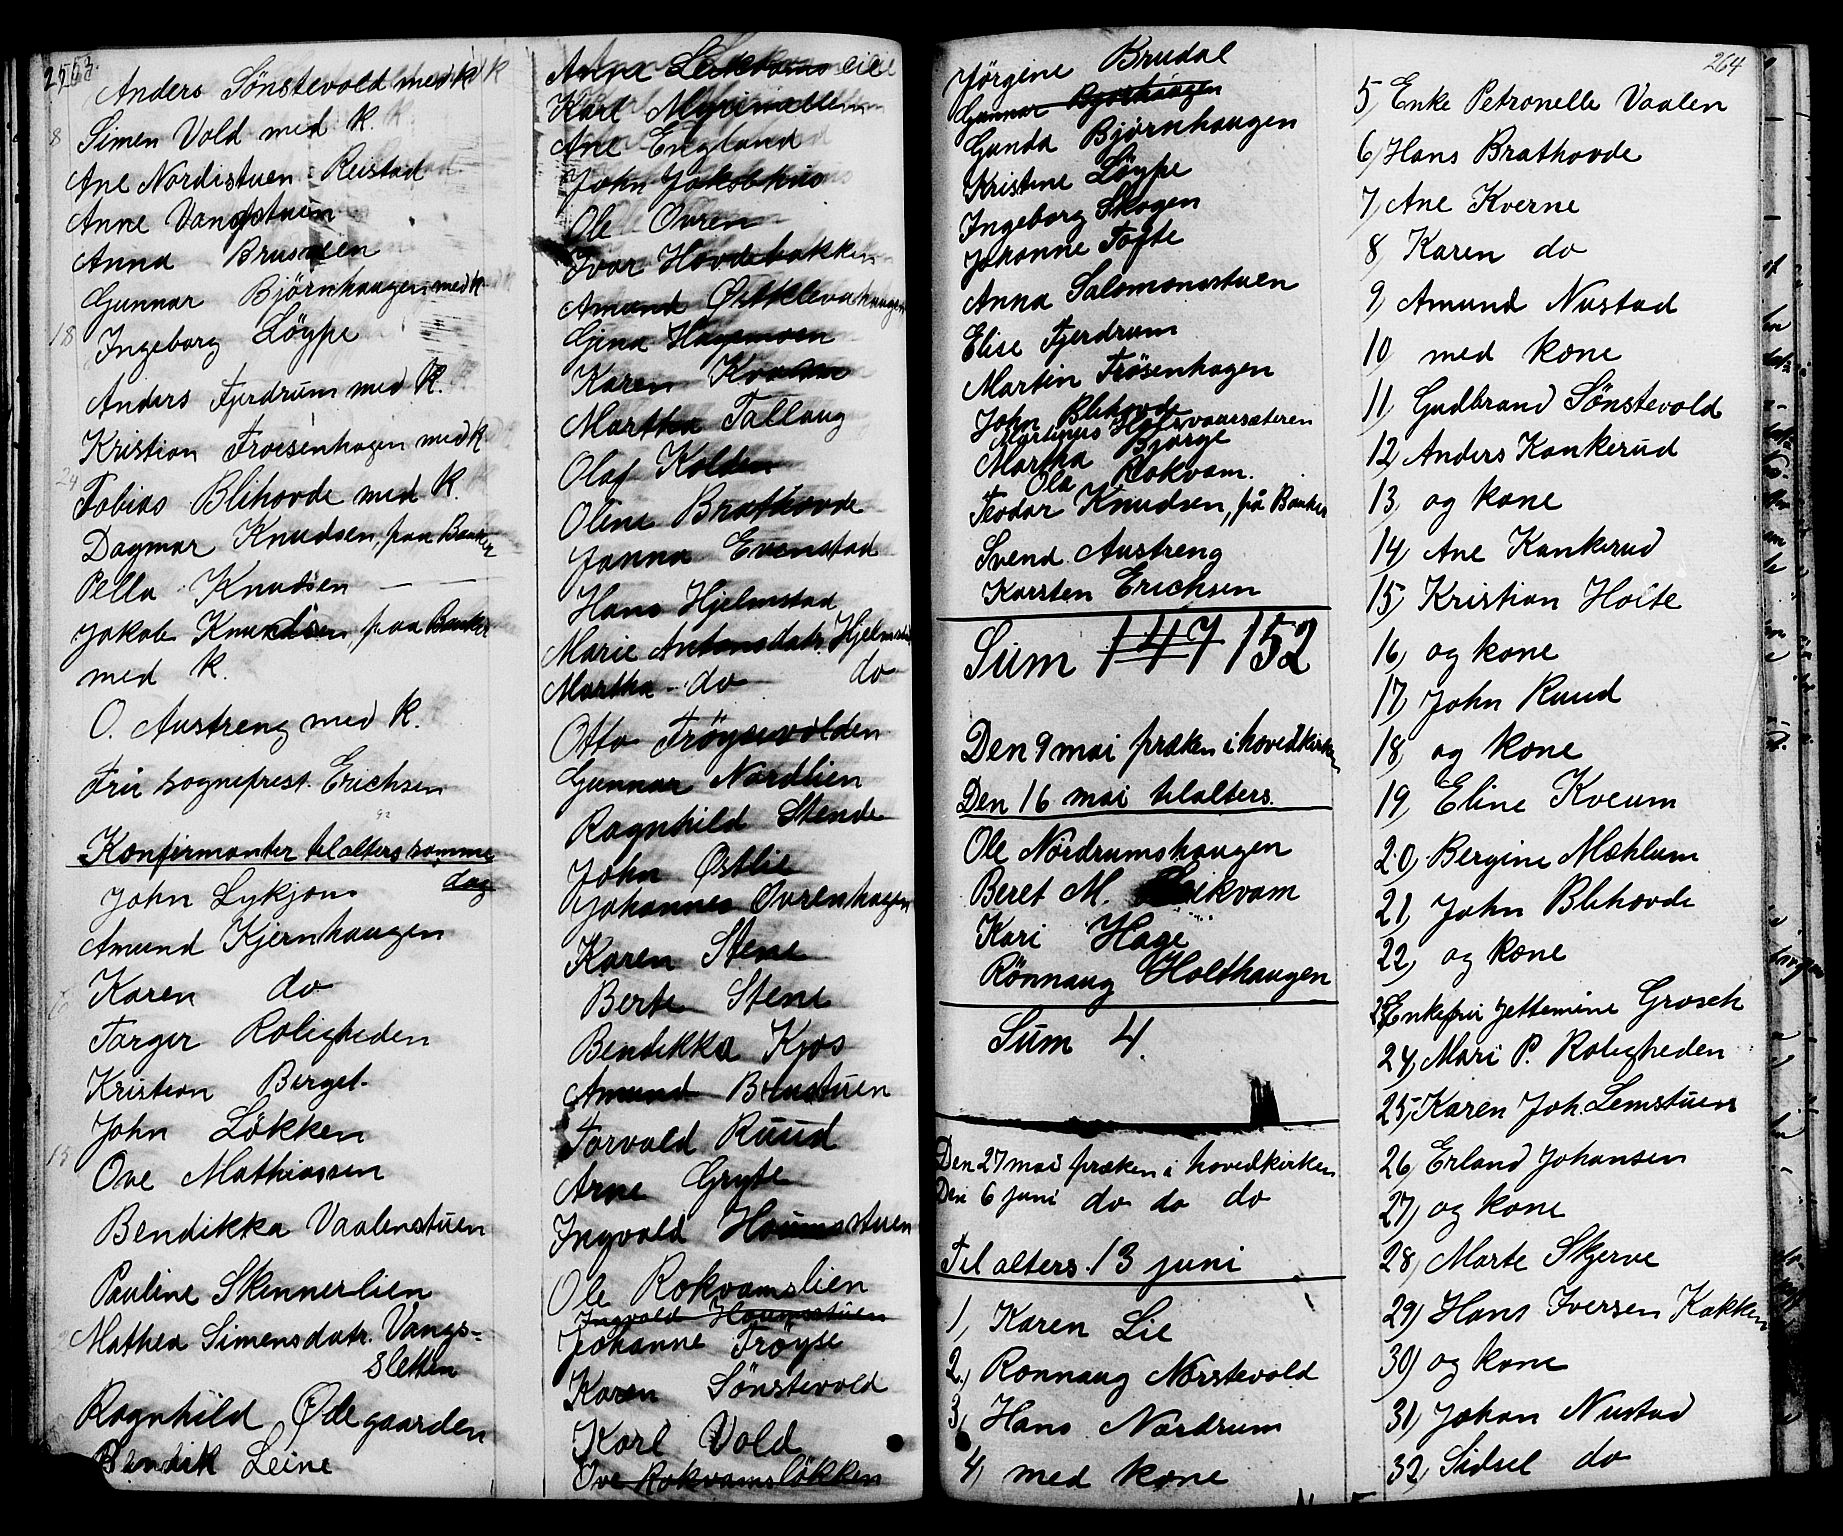 Anders Sönstevold med k
8
Simen Vold med k.
Ane Nordistuen Reistad
Anne Vangstuen
Anna Brusveen
Gunnar Björnhaugen med k
18
Ingeborg Löype
Anders Fjerdrum med k.
Kristian Froisenhagen med k
24
Tobias Blihovde med k.
Dagmar Knudsen, paa Banken
Pella Knudsen — —
Jakob Knudsen, paa Banken
med k.
O. Austreng med k.
Frü sogneprest. Erichsen
Konfirmanter til alters samme
dag
John Lykkjon
Amund Kjernhaugen
Karen do
Targer Roligheden
Kristian Berget
John Lökken
15
Ove Mathiassen
Bendikka Vaalenstuen
Pauline Skinnerlien
Mathea Simensdatr. Vangs-
sletten
Ragnhild Ødegaarden
Bendik Leine
Karl Myrimællem
Ane England
John Jakobhus
Ole Ovren
Ivar Hovdebakken
Amund Østklevahaugen
Gina Hagemoen
Karen Kvam
Martha Tallaug
Olaf Kolden
Oline Brathovde
Janna Evenstad
Hans Hjelmstad
Marie Antonsdatr. Hjelmstad
Martha do do
Otto Fröysevolden
Gunnar Nordlien
Ragnhild Stende
John Østlie
Johannes Ovrenhagen
Karen Stene
Berte Stene
Bendikka Kjos
Amund Brustuen
Torvald Ruud
Arne Gryte
Ingvald Houmsstuen
Ole Rokvamslien
Ingvald Houmsstuen
Johanne Fröyse
Karen Sönstevold
Karl Vold
Ove Rokvamslökken
Jörgine Brudal
Gunnar Bjørhaugen
Gunda Bjørnhaugen
Kristine Löype
Ingeborg Skogen
Johanne Tofte
Anna Salomonsstuen
Elise Fjerdrum
Martin Frösenhagen
John Blihovde
Martinus Holsvaarsæteren
Martha Bjørge
Ola Rokvam.
Teodor Knudsen, på Banken
Svend Austreng
Karsten Erichsen
Sum 147 152
Den 9 mai præken i hovedkirken
Den 16 mai til alters.
Ole Nordrumshaugen
Beret M. Leikvam
Kari Hage
Rönnaug Holthaugen
Sum 4.
Den 27 mai præken i hovedkirken
Den 6 juni do do do
Til alters 13 juni
1, Karen Lie
2, Ronnaug Norstevold
3, Hans Nordrum
4, med kone
264
5, Enke Petronelle Vaalen
6, Hans Brathovde
7, Ane Kverne
8, Karen do
9, Amund Nustad
10 med kone
11, Gudbrand Sönstevold
12, Anders Kankerud
13, og kone
14, Ane Kankerud
15, Kristian Holte
16, og kone
17, John Ruud
18, og kone
19, Eline Kveum
20, Bergine Mæhlum
21, John Blihovde
22, og kone
23, Enkefru Jettemine Grosch
24, Mari P. Roligheden
25, Karen Joh. Lemstuen
26, Erland Johansen
27, og kone
28, Marte Skjerve
29, Hans Iversen Kakken
30, og kone
31, Johan Nustad
32, Sidsel do